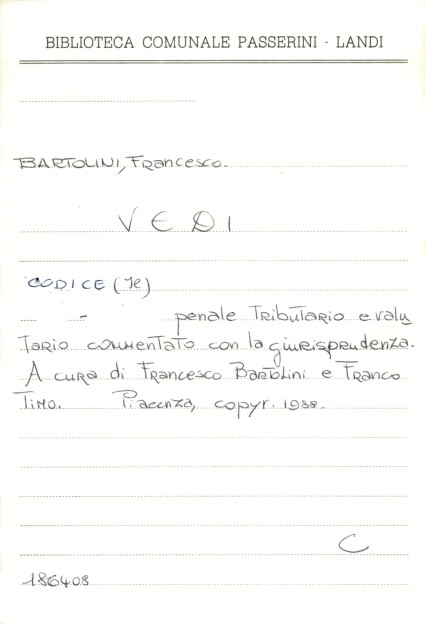 BIBLIOTECA COMUNALE PASSERINI - LANDI
BARTOLINI, Francesco.
VEDI
CODICE (Il)
- penale Tributario e valu
Tario commentato con la giurisprudenza.
A cura di Francesco Bartolini e Franco
Tino. Piacenza, copyr. 1988.
C
186408